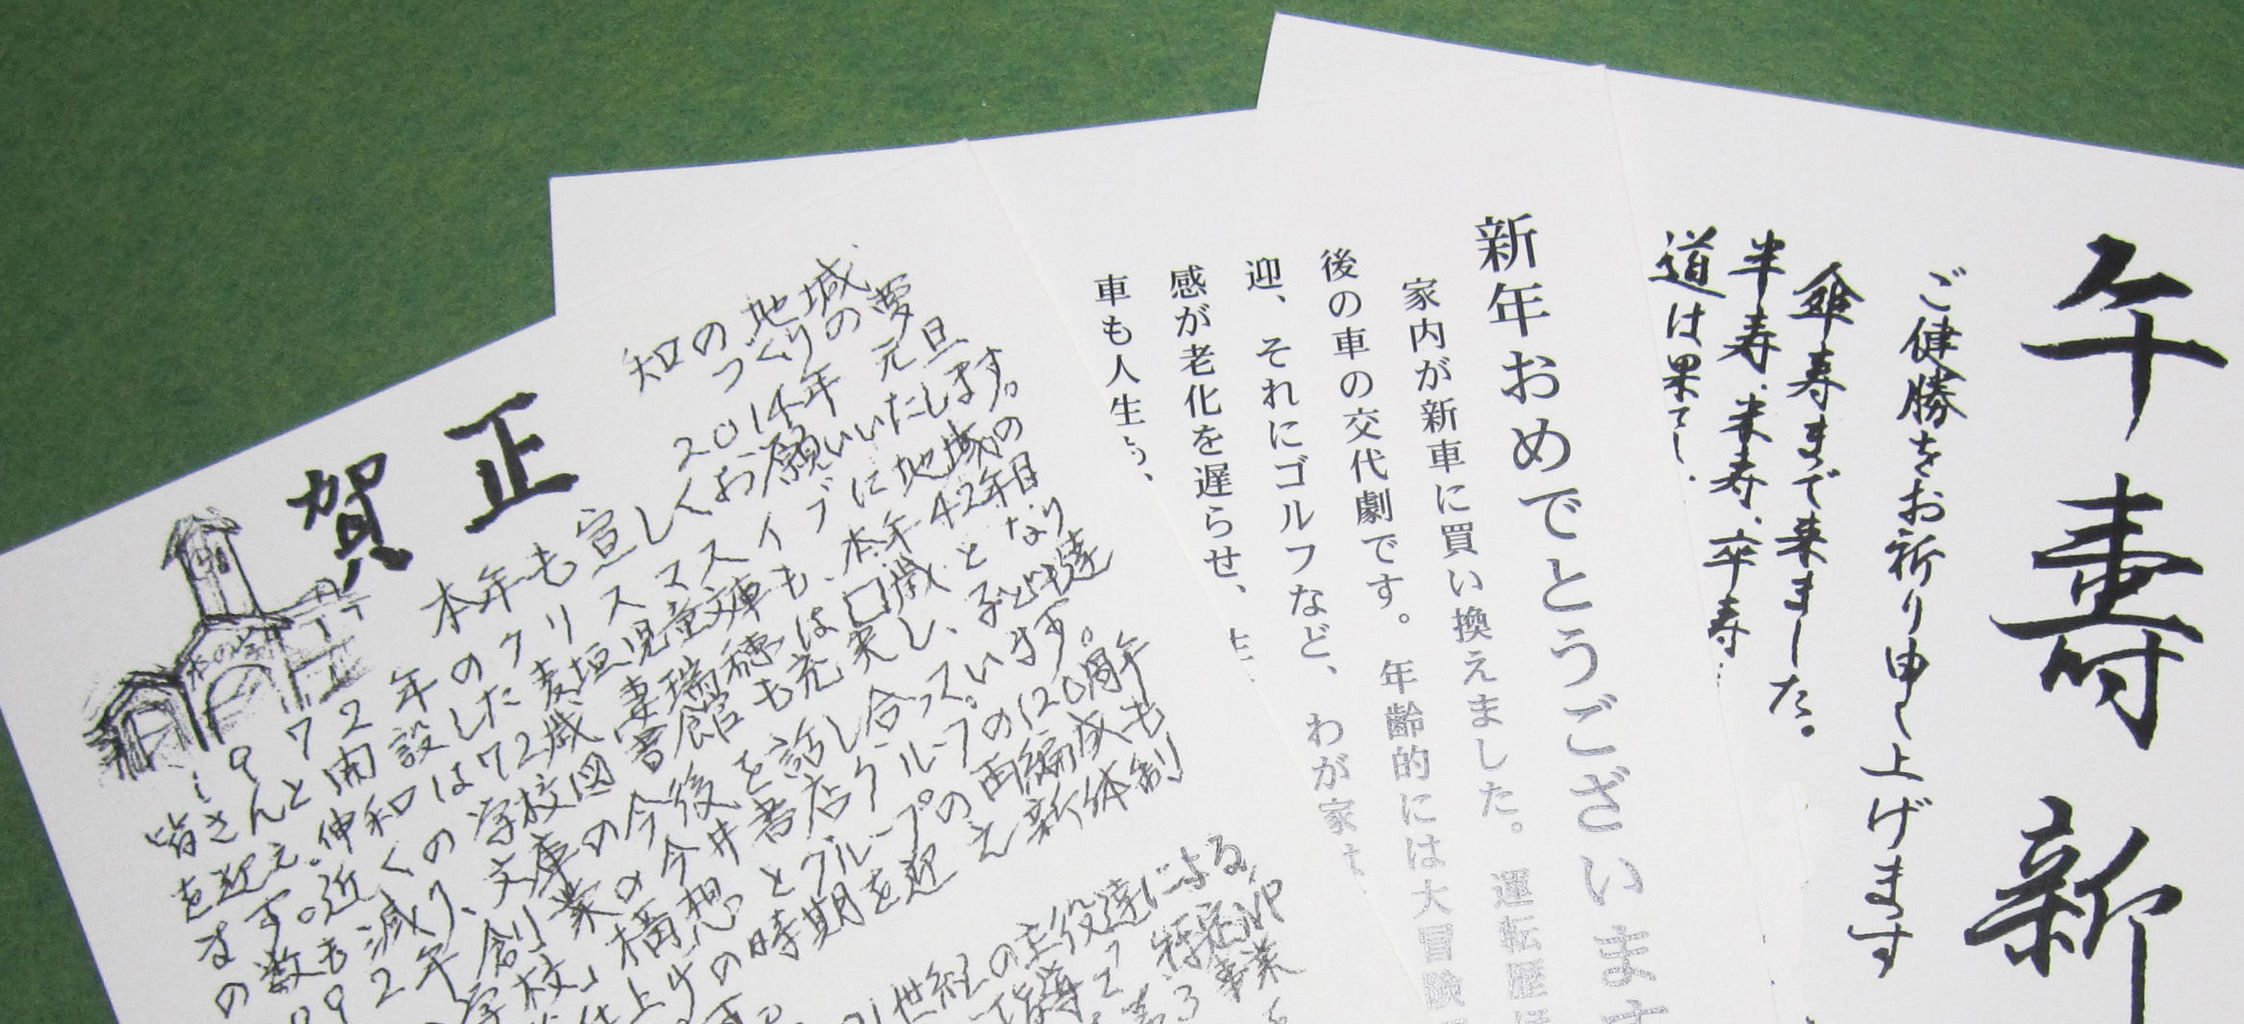 午壽新
ご健勝をお祈り申し上げます
傘寿まで来ました。
半寿、米寿、卒寿…
道は果てし
新年おめでとうございます
家内が新車に買い換えました。運転歴
後の車の交代劇です。年齢的には大冒険
迎、それにゴルフなど、わが家は
感が老化を遅らせ、
車も人生も、
知の地域
づくりの夢
賀正
2014年 元旦
本年も宜しくお願いいたします。
1972年のクリスマスイブに地域の
皆さんと開設した麦垣児童文庫も、本年42年目
を迎え、伸和は72歳 妻瑞穂は口歳となり
ます。近くの学校図書館も充実し、子ども達
の数も減り、文庫の今後を話し合っています。
92年、創業の今井書店グループの120周年
学校」構想とグループの再編成も
仕上げの時期を迎え新体制
21世紀の主役達による
指導 特定NP
事業